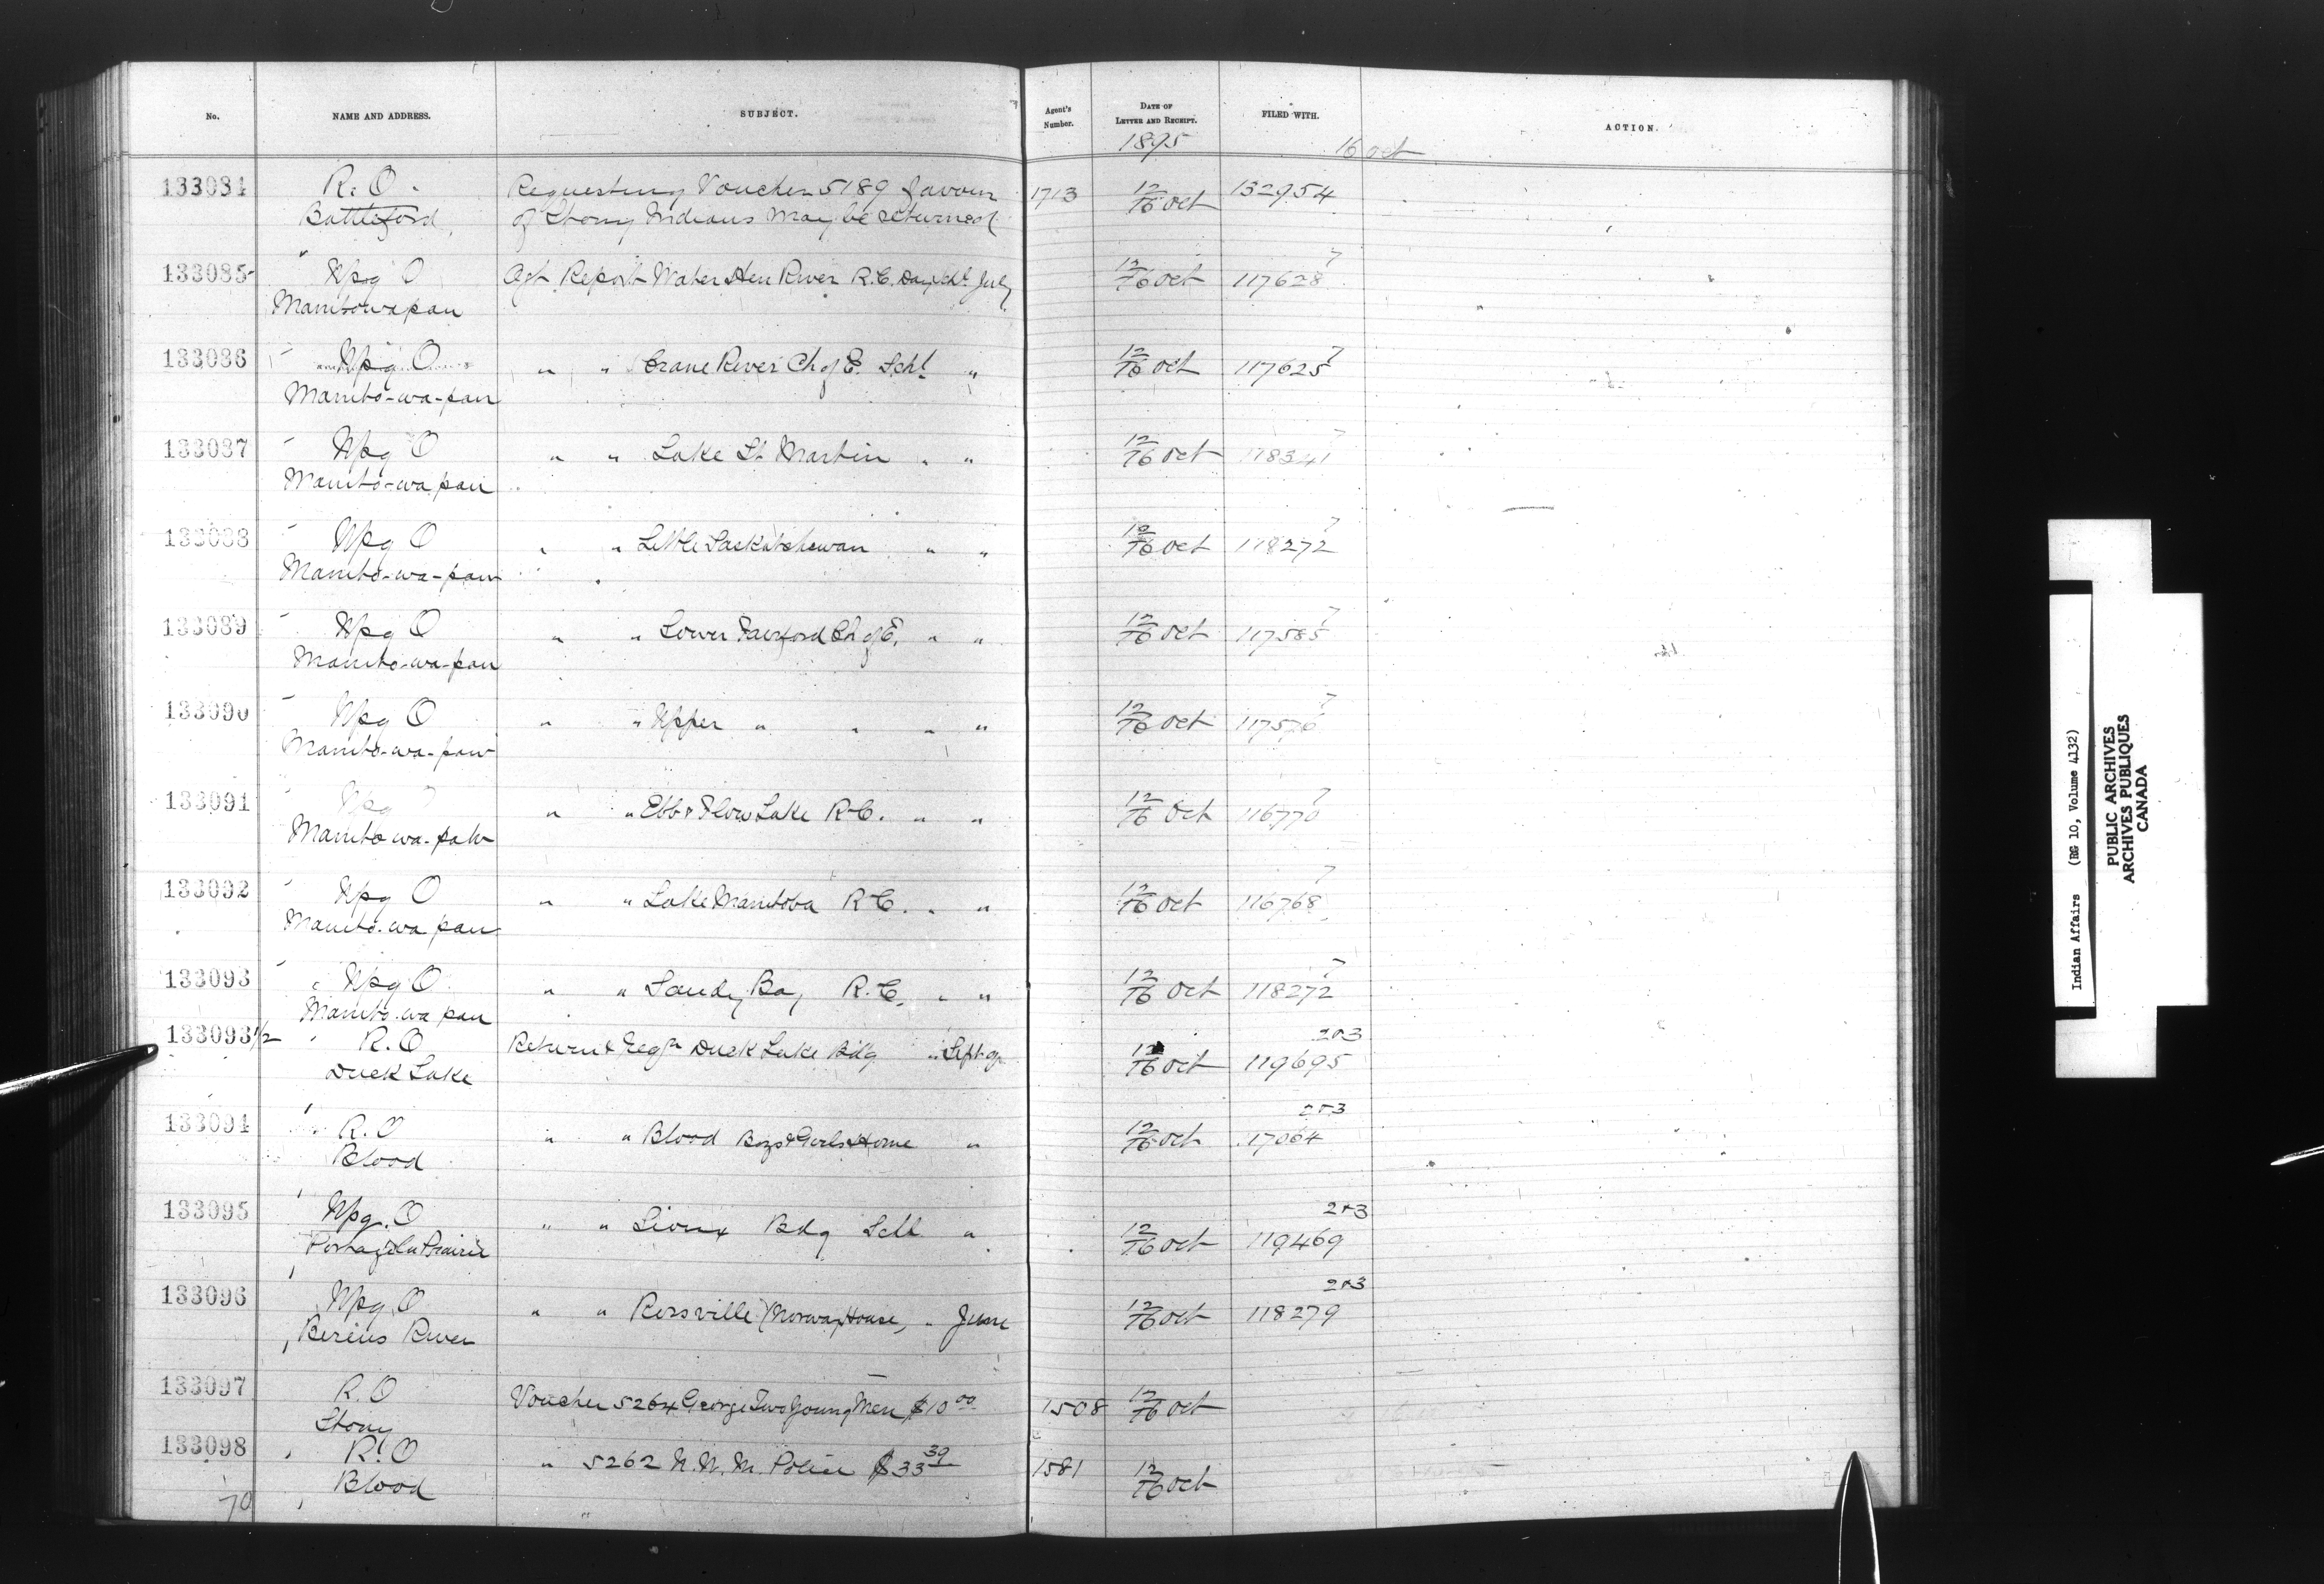 No. NAME AND ADDRESS. SUBJECT. Agent's Number. DATE OF LETTER AND RECEIPT. FILED WITH. ACTION.
1895 16 Oct
133084 R. O. Requesting Voucher 5189 favour 1713 12/16 Oct 132954
Battleford of Stony Indians may be returned
133085 Wpg O Agt Report Water Hen River R.C. Day Schl July 12/16 Oct 117628 7
Manitowapau
133086 Wpg O " " Crane River Ch of E. Schl " 12/16 Oct 117625 7
Manito-wa-pau
133087 Wpg O " " Lake St. Martin " " 12/16 Oct 118341 7
Manito-wa pau
133088 Wpg O " " Little Saskatchewan " " 12/16 Oct 118272 7
Manito-wa-pau
133089 Wpg O " " Lower Fairford Ch of E. " " 12/16 Oct 117585 7
Manito-wa-pau
133090 Wpg O " " Upper " " " " 12/16 Oct 117576 7
Manito-wa-pau
133091 Wpg " " Ebb & Flow Lake R.C. " " 12/16 Oct 116770 7
Manito wa-pau
133092 Wpg O " " Lake Manitoba R.C. " " 12/16 Oct 116768 7
Manito-wa pau
133093 Wpg O " " Sandy Bay R.C. " " 12/16 Oct 118272 7
Manito-wa pau
133093 1/2 R.O Return & Reqn Duck Lake Bdg " Sept qr 12/16 Oct 119695 2&3
Duck Lake
133094 R.O " " Blood Boys & Girls Home " 12/16 Oct 17064 2&3
Blood
133095 Wpg. O " " Sioux Bdg Schl " 12/16 Oct 119469 2&3
Portage la Prairie
133096 Wpg. O " " Rossville (Norway House) " June 12/16 Oct 118279 2&3
Berens River
133097 R.O Voucher 5264 George Two Young Men $10 00 1508 12/16 Oct
Stony
133098 R.O " 5262 N.W.M. Police $33 39 1581 12/16 Oct
Blood
70
Indian Affairs (RG 10, Volume 4132)
PUBLIC ARCHIVES
ARCHIVES PUBLIQUES
CANADA